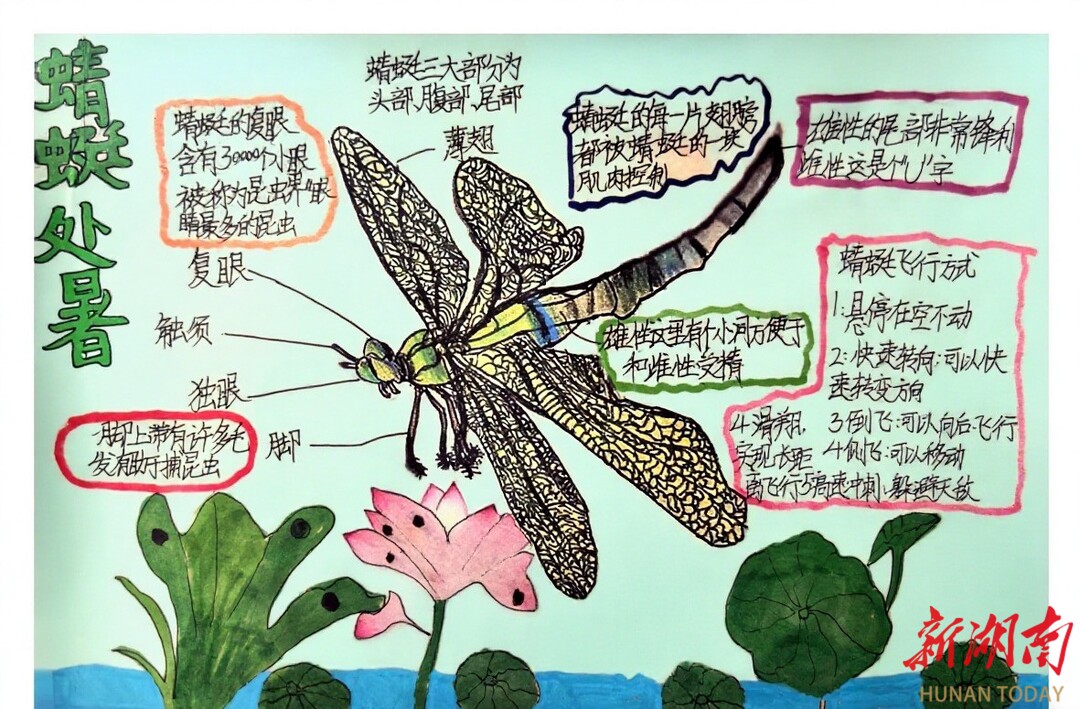 蜻蜓 处暑
蜻蜓三大部分为
头部、腹部、尾部
蜻蜓的复眼
含有30000个小眼
被称为昆虫界眼
睛最多的昆虫
薄翅
蜻蜓的每一片翅膀
都被蜻蜓的一块
肌肉控制
雄性的尾部非常锋利
雌性这是个"U"字
复眼
触须
独眼
脚
脚上带有许多毛
发有助于捕昆虫
雄性这里有个小洞方便于
和雌性受精
蜻蜓飞行方式
1:悬停在空不动
2:快速转向:可以快
速转变方向
3倒飞:可以向后飞行
4侧飞:可以移动
4滑翔,
实现长距
离飞行5高速冲刺、躲避天敌
新湖南
HUNAN TODAY